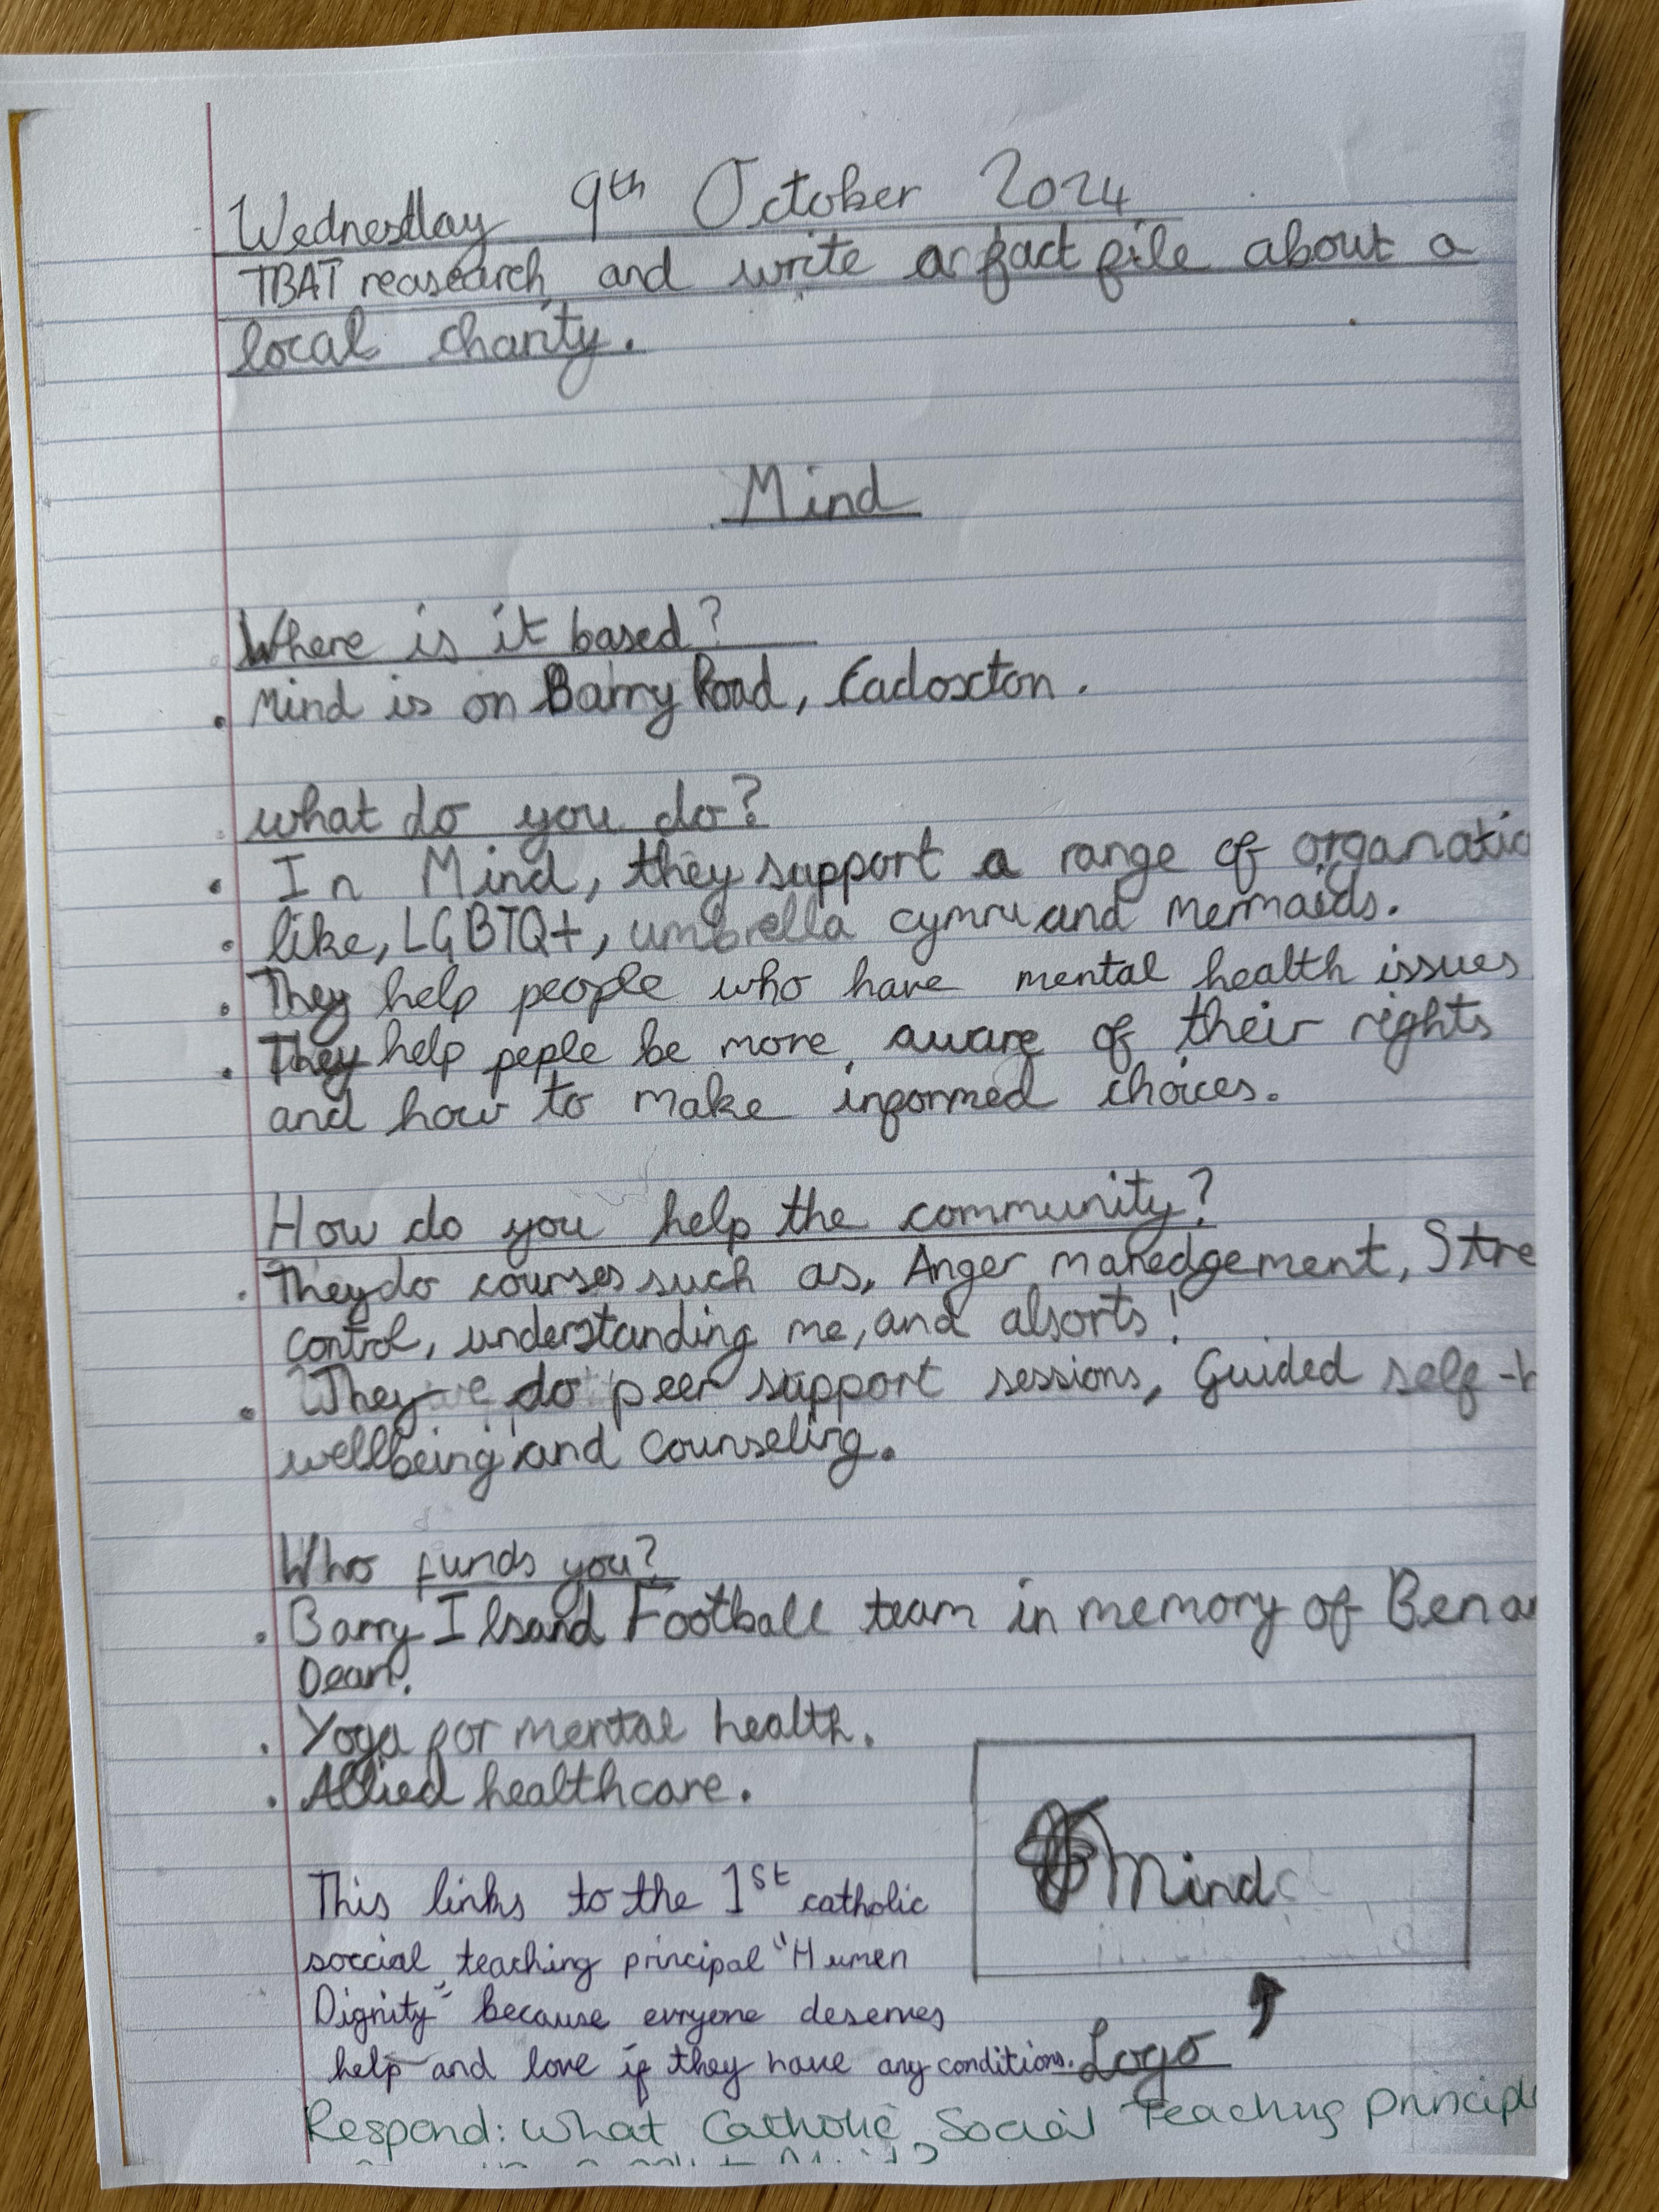 Wednesday 9th October 2024
TBAT reasearch and write a fact file about a
local charity.
Mind
Where is it based?
. Mind is on Barry Road, Cadoxton.
what do you do?
. In Mind, they support a range of organatio
. like, LGBTQ+, umbrella cymru and mermaids.
. They help people who have mental health issues
. They help peple be more aware of their rights
and how to make informed choices.
How do you help the community?
. They do courses such as, Anger manedgement, Stre
control, understanding me, and alsorts!
. They do peer support sessions, Guided self-h
wellbeing and counseling.
Who funds you?
. Barry Ilsand Football team in memory of Ben an
Dean.
. Yoga for mental health.
. Allied healthcare.
Mind
This links to the 1st catholic
soccial teaching principal "Humen
Dignity" because evryone deserves
help and love if they have any conditions. Logo
Respond: What Catholic Social Teaching principle